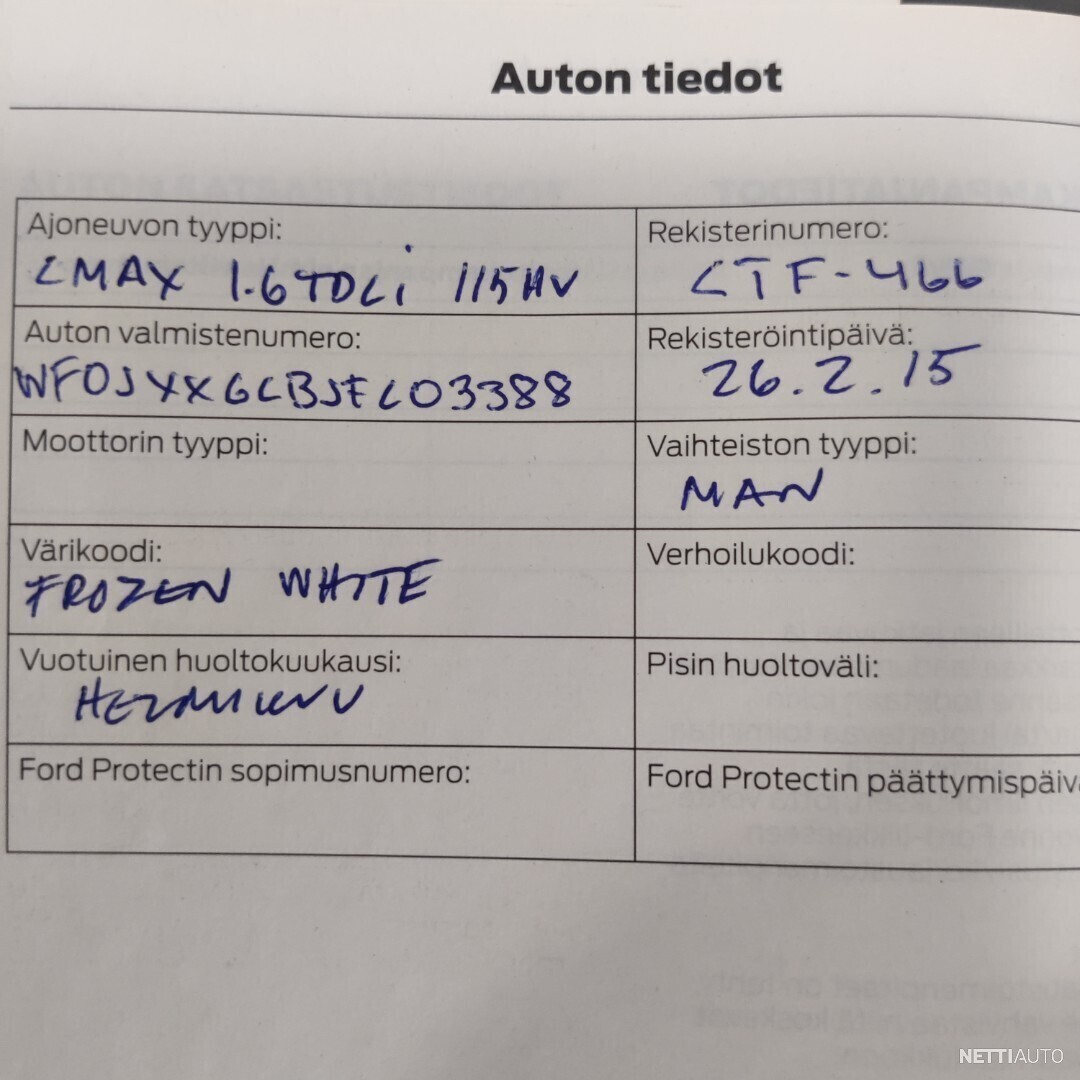 Auton tiedot
Ajoneuvon tyyppi:
CMAX 1.6TDCi 115HV
Rekisterinumero:
CTF-466
Auton valmistenumero:
WF0JXXGCBJEC03388
Rekisteröintipäivä:
26.2.15
Moottorin tyyppi:
Vaihteiston tyyppi:
MAN
Värikoodi:
FROZEN WHITE
Verhoilukoodi:
Vuotuinen huoltokuukausi:
HELMIKUU
Pisin huoltoväli:
Ford Protectin sopimusnumero:
Ford Protectin päättymispäivä
NETTIAUTO